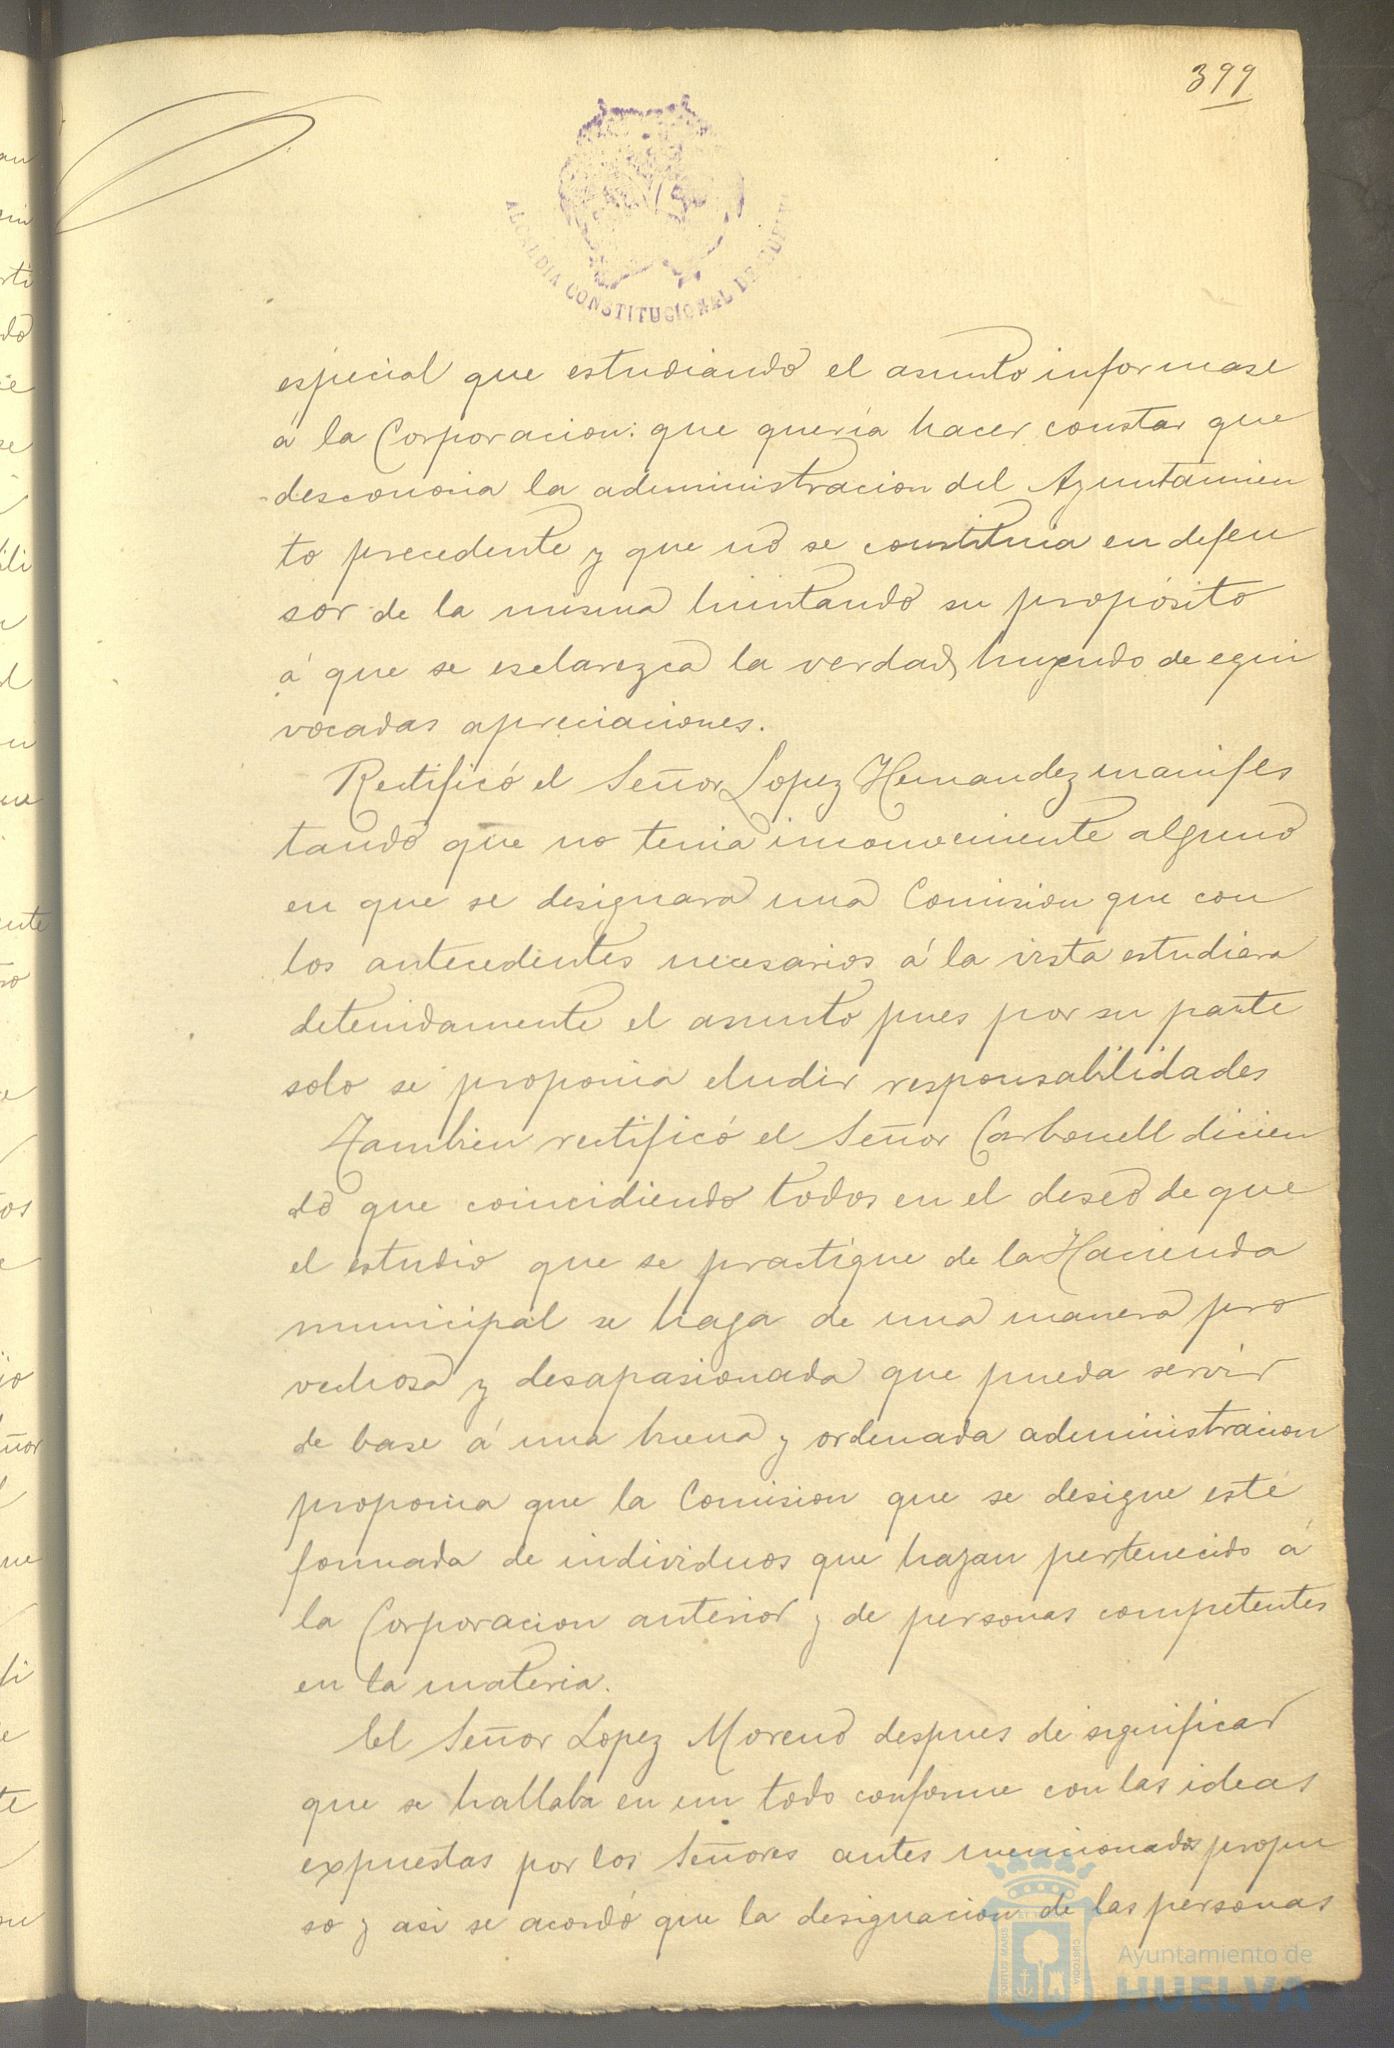 399
ALCALDIA CONSTITUCIONAL DE HUELVA
especial que estudiando el asunto informase
á la Corporacion: que quería hacer constar que
desconocia la administracion del Ayuntamien
to precedente y que no se constituia en defen
sor de la misma limitando su propósito
á que se esclarezca la verdad, huyendo de equi
vocadas apreciaciones.
Rectificó el Señor Lopez Hernandez manifes
tando que no tenia inconveniente alguno
en que se designara una Comision que con
los antecedentes necesarios á la vista estudiara
detenidamente el asunto pues por su parte
solo se proponia eludir responsabilidades
Tambien rectificó el Señor Carbonell dicien
do que coincidiendo todos en el deseo de que
el estudio que se practique de la Hacienda
municipal se haga de una manera pro
vechosa y desapasionada que pueda servir
de base á una buena y ordenada administracion
proponia que la Comision que se designe esté
formada de individuos que hayan pertenecido á
la Corporacion anterior y de personas competentes
en la materia.
El Señor Lopez Moreno despues de significar
que se hallaba en un todo conforme con las ideas
expuestas por los Señores antes mencionados propu
so y asi se acordó que la designacion de las personas
PORTUS MARIS ET TERRAE CUSTODIA
Ayuntamiento de
HUELVA